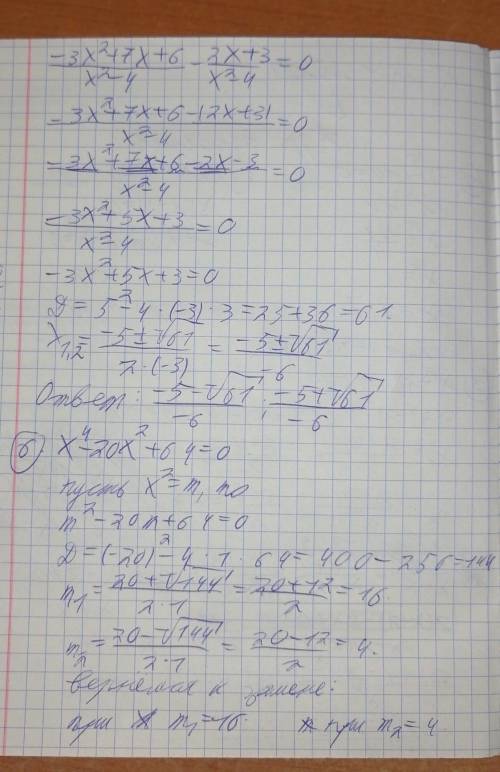 (-3x²+7x+6)/(x²-4) - (3x+3)/(x²-4) = 0
(-3x²+7x+6-(2x+3))/(x²-4) = 0
(-3x²+7x+6-2x-3)/(x²-4) = 0
(-3x²+5x+3)/(x²-4) = 0
-3x²+5x+3=0
D = 5²-4·(-3)·3=25+36=61.
x₁,₂ = (-5±√61)/(2·(-3)) = (-5±√61)/(-6)
Ответ: (-5-√61)/(-6); (-5+√61)/(-6)
б) x⁴-20x²+64=0
пусть x²=m, то
m²-20m+64=0
D=(-20)²-4·1·64=400-256=144
m₁=(20+√144)/(2·1)=(20+12)/2=16
m₂=(20-√144)/(2·1)=(20-12)/2=4.
вернемся к замене:
при m₁=16 при m₂=4